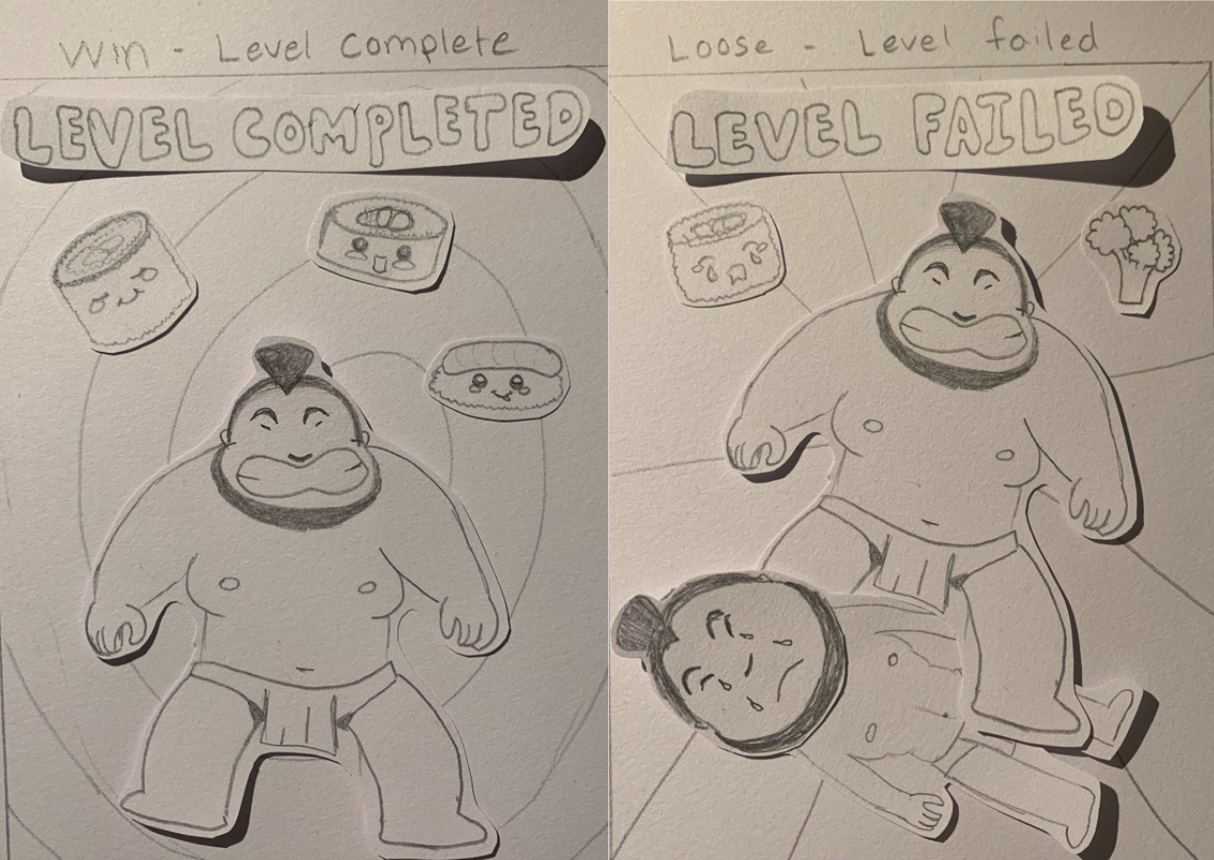 Win - Level Complete
LEVEL COMPLETED
Loose - Level failed
LEVEL FAILED